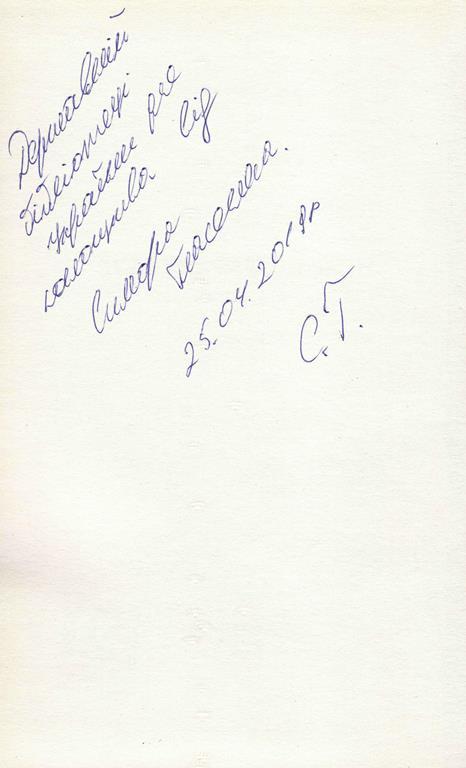 Державній
бібліотеці
України для
юнацтва від
Сидора
25.04.2018р
С.Г.